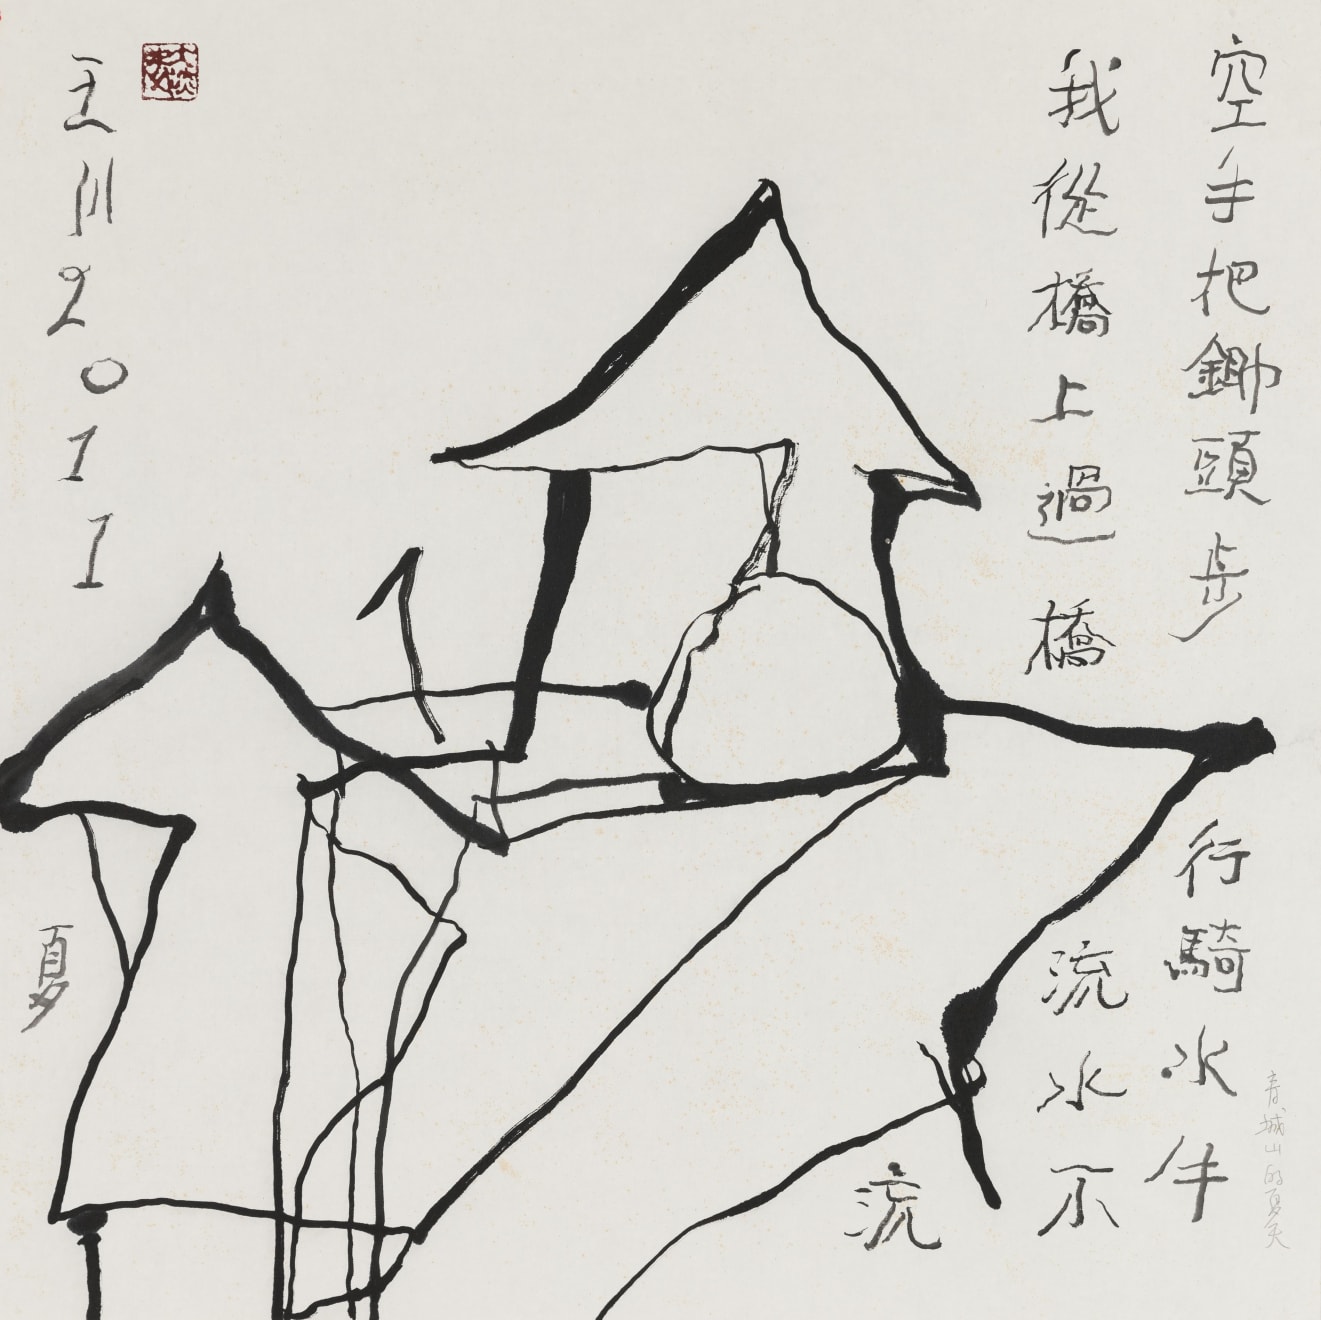 青城山的夏天
空手把鋤頭步
行騎水牛
我從橋上過橋
流水不
流
王川2011
夏